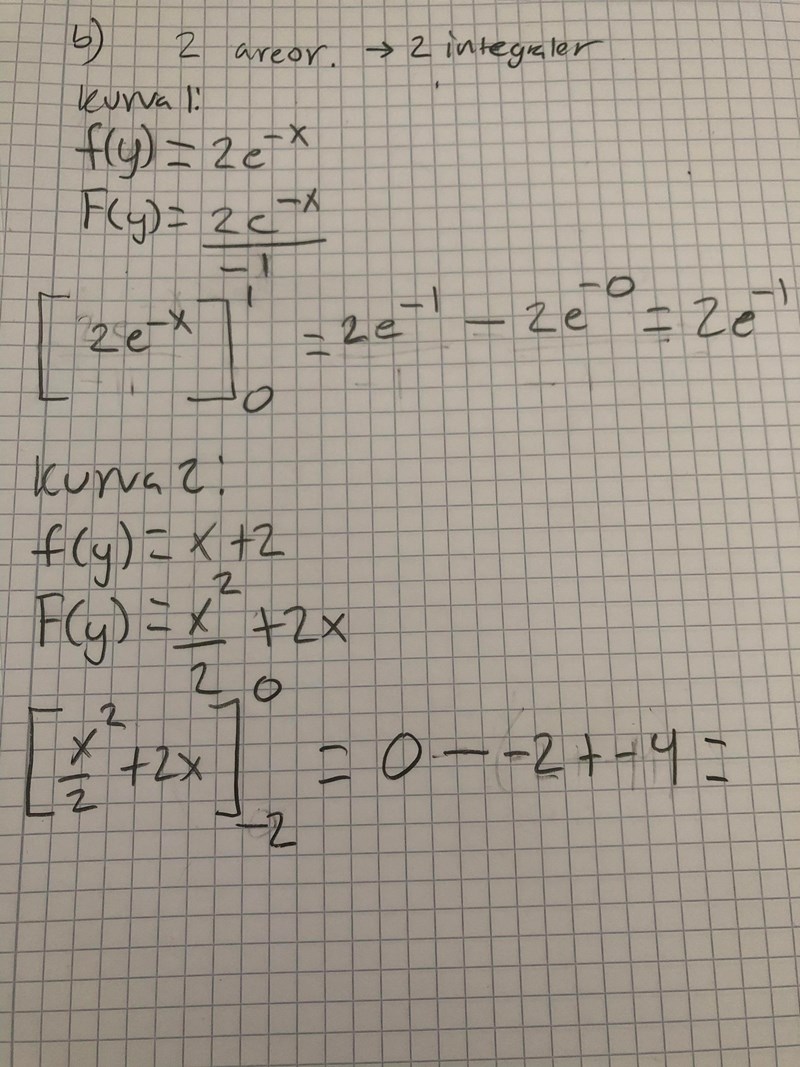 b) 2 areor. → 2 integraler
kurva 1:
f(y) = 2e^-x
F(y) = 2e^-x / -1
[2e^-x]^1_0 = 2e^-1 - 2e^-0 = 2e^-1
kurva 2:
f(y) = x + 2
F(y) = x^2/2 + 2x
[x^2/2 + 2x]^0_-2 = 0 - -2 + -4 =